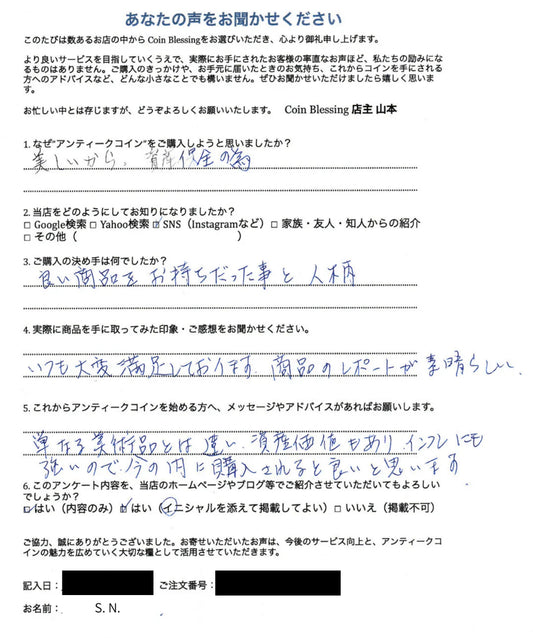 あなたの声をお聞かせください
このたびは数あるお店の中から Coin Blessingをお選びいただき、心より御礼申し上げます。
より良いサービスを目指していくうえで、実際にお手にされたお客様の率直なお声ほど、私たちの励みにな
るものはありません。ご購入のきっかけや、お手元に届いたときのお気持ち、これからコインを手にされる
方へのアドバイスなど、どんな小さなことでも構いません。ぜひお聞かせいただけましたら嬉しく思いま
す。
お忙しい中とは存じますが、どうぞよろしくお願いいたします。 Coin Blessing 店主 山本
1. なぜ"アンティークコイン"をご購入しようと思いましたか?
美しいから、資産保全の為
2. 当店をどのようにしてお知りになりましたか?
□ Google検索 □ Yahoo検索 ☑ SNS(Instagramなど)□ 家族・友人・知人からの紹介
□ その他( )
3. ご購入の決め手は何でしたか?
良い商品をお持ちだった事と人柄
4. 実際に商品を手に取ってみた印象・ご感想をお聞かせください。
いつも大変満足しております。商品のレポートが素晴らしい、
5. これからアンティークコインを始める方へ、メッセージやアドバイスがあればお願いします。
単なる美術品とは違い、資産価値もあり、インフレにも
強いので、今の内に購入されると良いと思います
6. このアンケート内容を、当店のホームページやブログ等でご紹介させていただいてもよろしい
でしょうか?
☑はい(内容のみ)☑はい(イニシャルを添えて掲載してよい)□ いいえ(掲載不可)
ご協力、誠にありがとうございました。お寄せいただいたお声は、今後のサービス向上と、アンティークコ
インの魅力を広めていく大切な糧として活用させていただきます。
記入日: ご注文番号:
お名前: S. N.